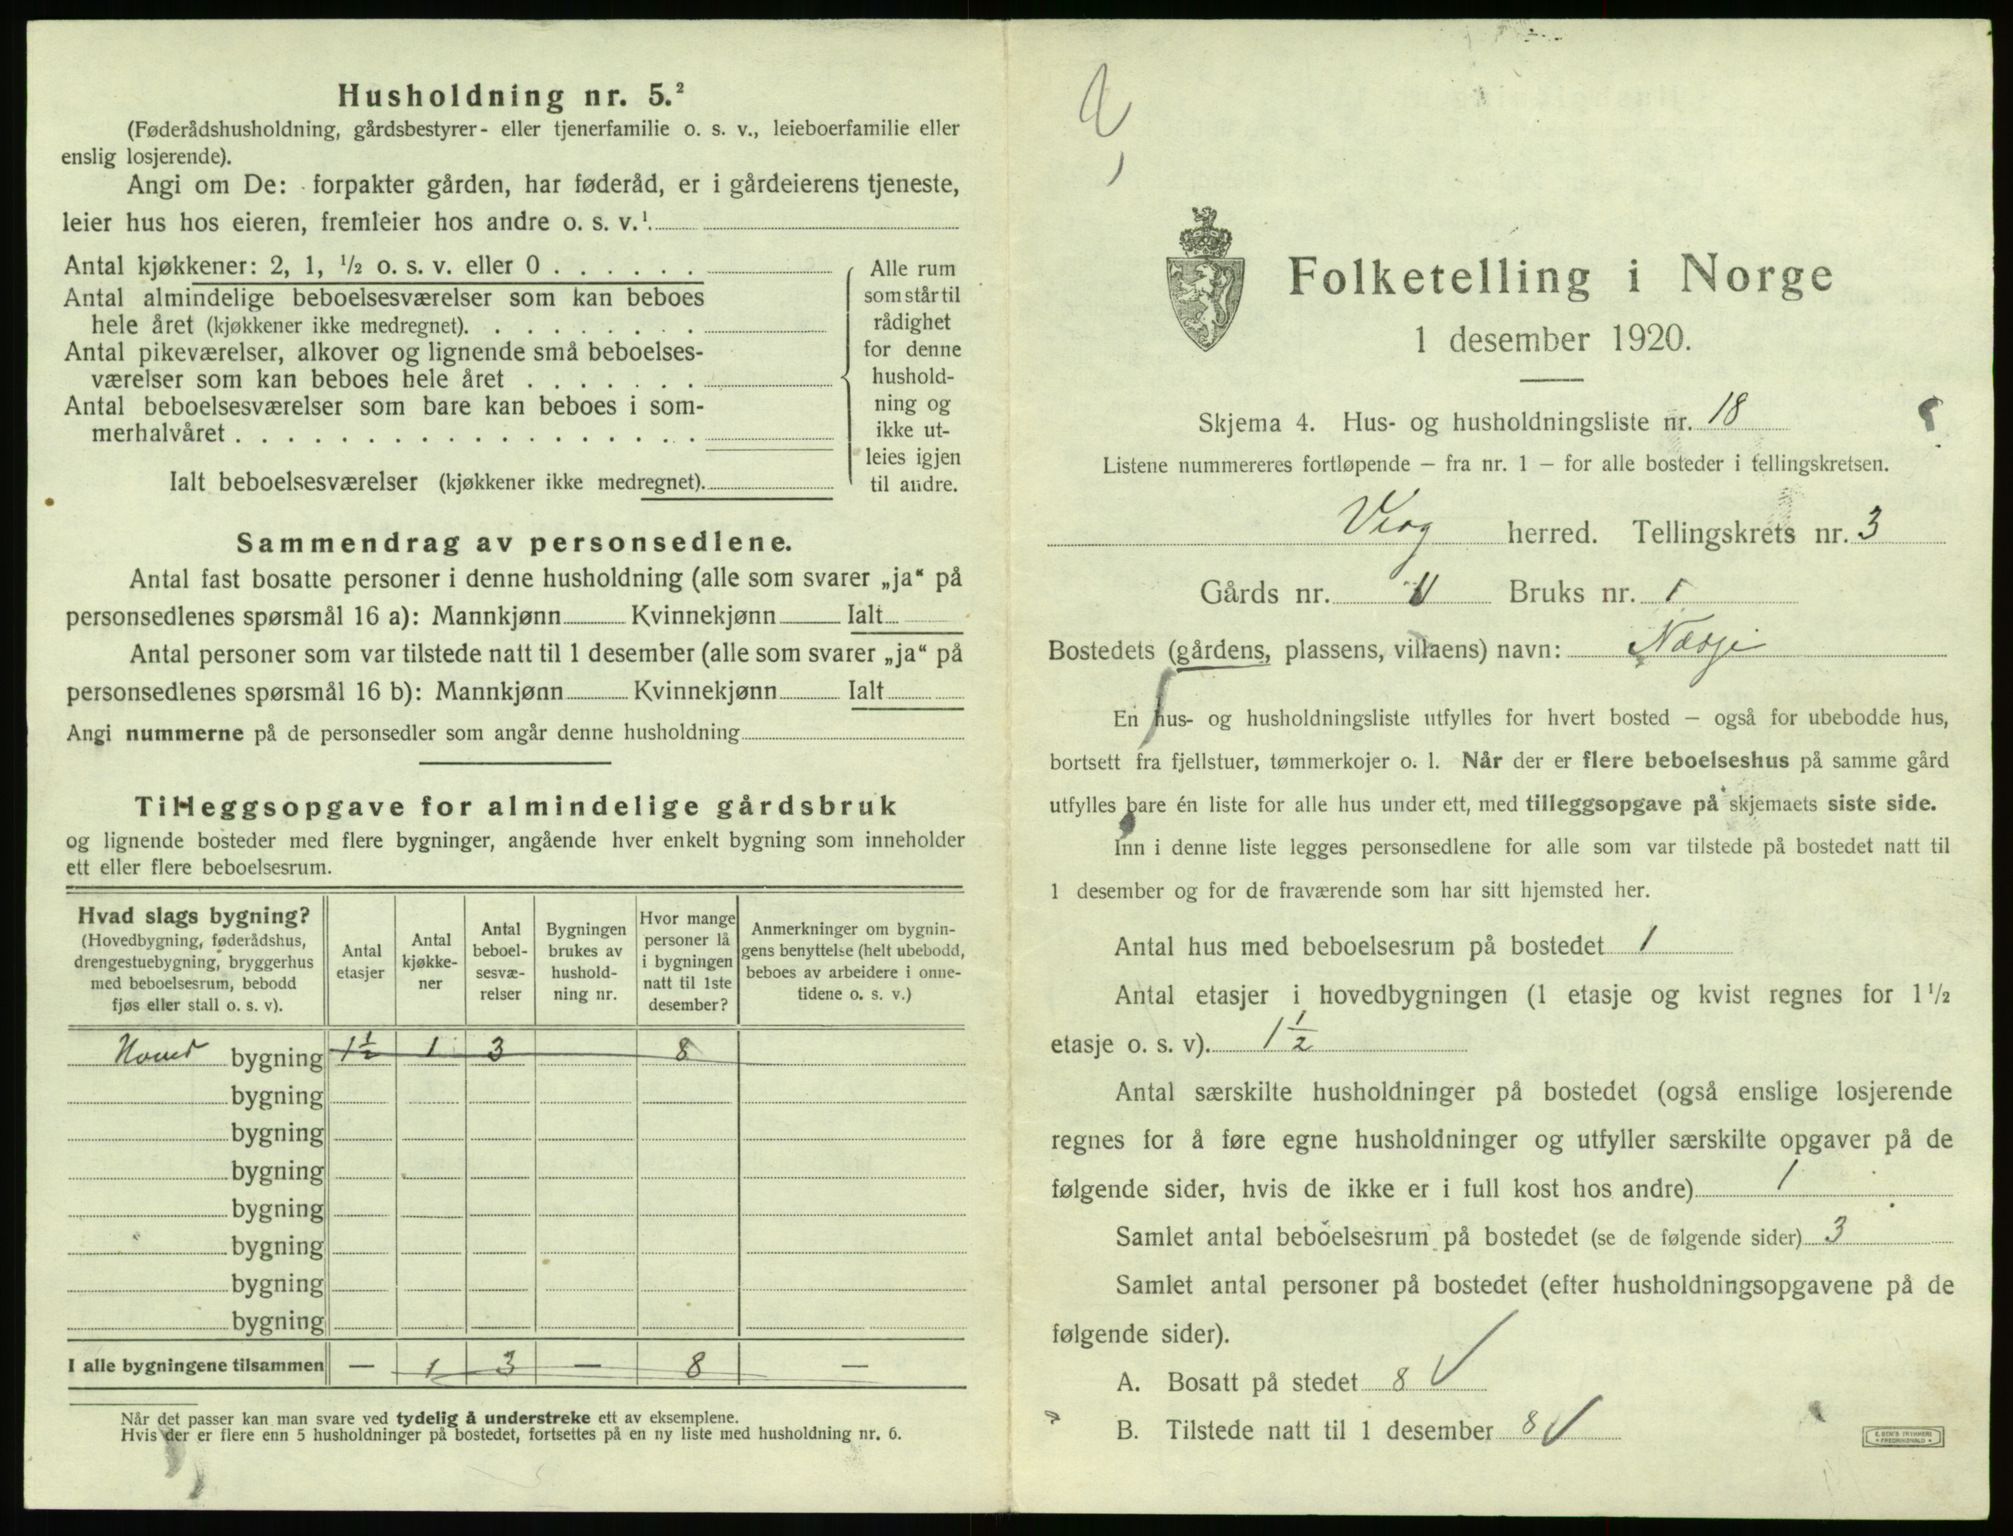 Husholdning nr. 5.²
(Føderådshusholdning, gårdsbestyrer- eller tjenerfamilie o. s. v., leieboerfamilie eller
enslig losjerende).
Angi om De: forpakter gården, har føderåd, er i gårdeierens tjeneste,
leier hus hos eieren, fremleier hos andre o. s. v.¹
Antal kjøkkener: 2, 1, ½ o. s. v. eller 0 . . . . . .
Antal almindelige beboelsesværelser som kan beboes
hele året (kjøkkener ikke medregnet). . . . . . . . .
Antal pikeværelser, alkover og lignende små beboelses-
værelser som kan beboes hele året . . . . . . .
Antal beboelsesværelser som bare kan beboes i som-
merhalvåret . . . . . . . . . . . . . . . . . .
Ialt beboelsesværelser (kjøkkener ikke medregnet).
Alle rum
som står til
rådighet
for denne
hushold-
ning og
ikke ut-
leies igjen
til andre.
Sammendrag av personsedlene.
Antal fast bosatte personer i denne husholdning (alle som svarer „ja“ på
personsedlenes spørsmål 16 a): Mannkjønn Kvinnekjønn Ialt
Antal personer som var tilstede natt til 1 desember (alle som svarer „ja“ på
personsedlenes spørsmål 16 b): Mannkjønn Kvinnekjønn Ialt
Angi nummerne på de personsedler som angår denne husholdning
Tilleggsopgave for almindelige gårdsbruk
og lignende bosteder med flere bygninger, angående hver enkelt bygning som inneholder
ett eller flere beboelsesrum.
Hvad slags bygning?
(Hovedbygning, føderådshus,
drengestuebygning, bryggerhus
med beboelsesrum, bebodd
fjøs eller stall o. s. v).
Antal
etasjer
Antal
kjøkke-
ner
Antal
beboel-
sesvæ-
relser
Bygningen
brukes av
hushold-
ning nr.
Hvor mange
personer lå
i bygningen
natt til 1ste
desember?
Anmerkninger om bygnin-
gens benyttelse (helt ubebodd,
beboes av arbeidere i onne-
tidene o. s. v.)
Hoved bygning 1½ 1 3 8
bygning
bygning
bygning
bygning
bygning
bygning
bygning
I alle bygningene tilsammen — 1 3 — 8 —
Når det passer kan man svare ved tydelig å understreke ett av eksemplene.
Hvis der er flere enn 5 husholdninger på bostedet, fortsettes på en ny liste med husholdning nr. 6.
Folketelling i Norge
1 desember 1920.
Skjema 4. Hus- og husholdningsliste nr. 18
Listene nummereres fortløpende – fra nr. 1 – for alle bosteder i tellingskretsen.
herred. Tellingskrets nr. 3
Gårds nr. Bruks nr. 1
Bostedets (gårdens, plassens, villaens) navn: Næsje
En hus- og husholdningsliste utfylles for hvert bosted – også for ubebodde hus,
bortsett fra fjellstuer, tømmerkojer o. l. Når der er flere beboelseshus på samme gård
utfylles bare én liste for alle hus under ett, med tilleggsopgave på skjemaets siste side.
Inn i denne liste legges personsedlene for alle som var tilstede på bostedet natt til
1 desember og for de fraværende som har sitt hjemsted her.
Antal hus med beboelsesrum på bostedet 1
Antal etasjer i hovedbygningen (1 etasje og kvist regnes for 1½
etasje o. s. v). 1½
Antal særskilte husholdninger på bostedet (også enslige losjerende
regnes for å føre egne husholdninger og utfyller særskilte opgaver på de
følgende sider, hvis de ikke er i full kost hos andre) 1
Samlet antal beboelsesrum på bostedet (se de følgende sider) 3
Samlet antal personer på bostedet (efter husholdningsopgavene på de
følgende sider).
A. Bosatt på stedet 8 √
B. Tilstede natt til 1 desember 8 √